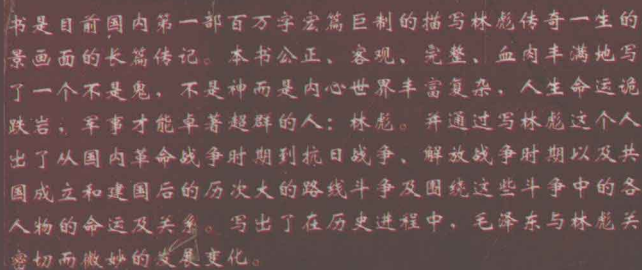 书是目前国内第一部百万字宏篇巨制的描写林彪传奇一生的
景画面的长篇传记。本书公正、客观、完整、血肉丰满地写
了一个不是鬼，不是神而是内心世界丰富复杂，人生命运诡
跌岩；军事才能卓著超群的人：林彪。并通过写林彪这个人
出了从国内革命战争时期到抗日战争、解放战争时期以及共
国成立和建国后的历次大的路线斗争及围绕这些斗争中的各
人物的命运及关系。写出了在历史进程中，毛泽东与林彪关
密切而微妙的发展变化。